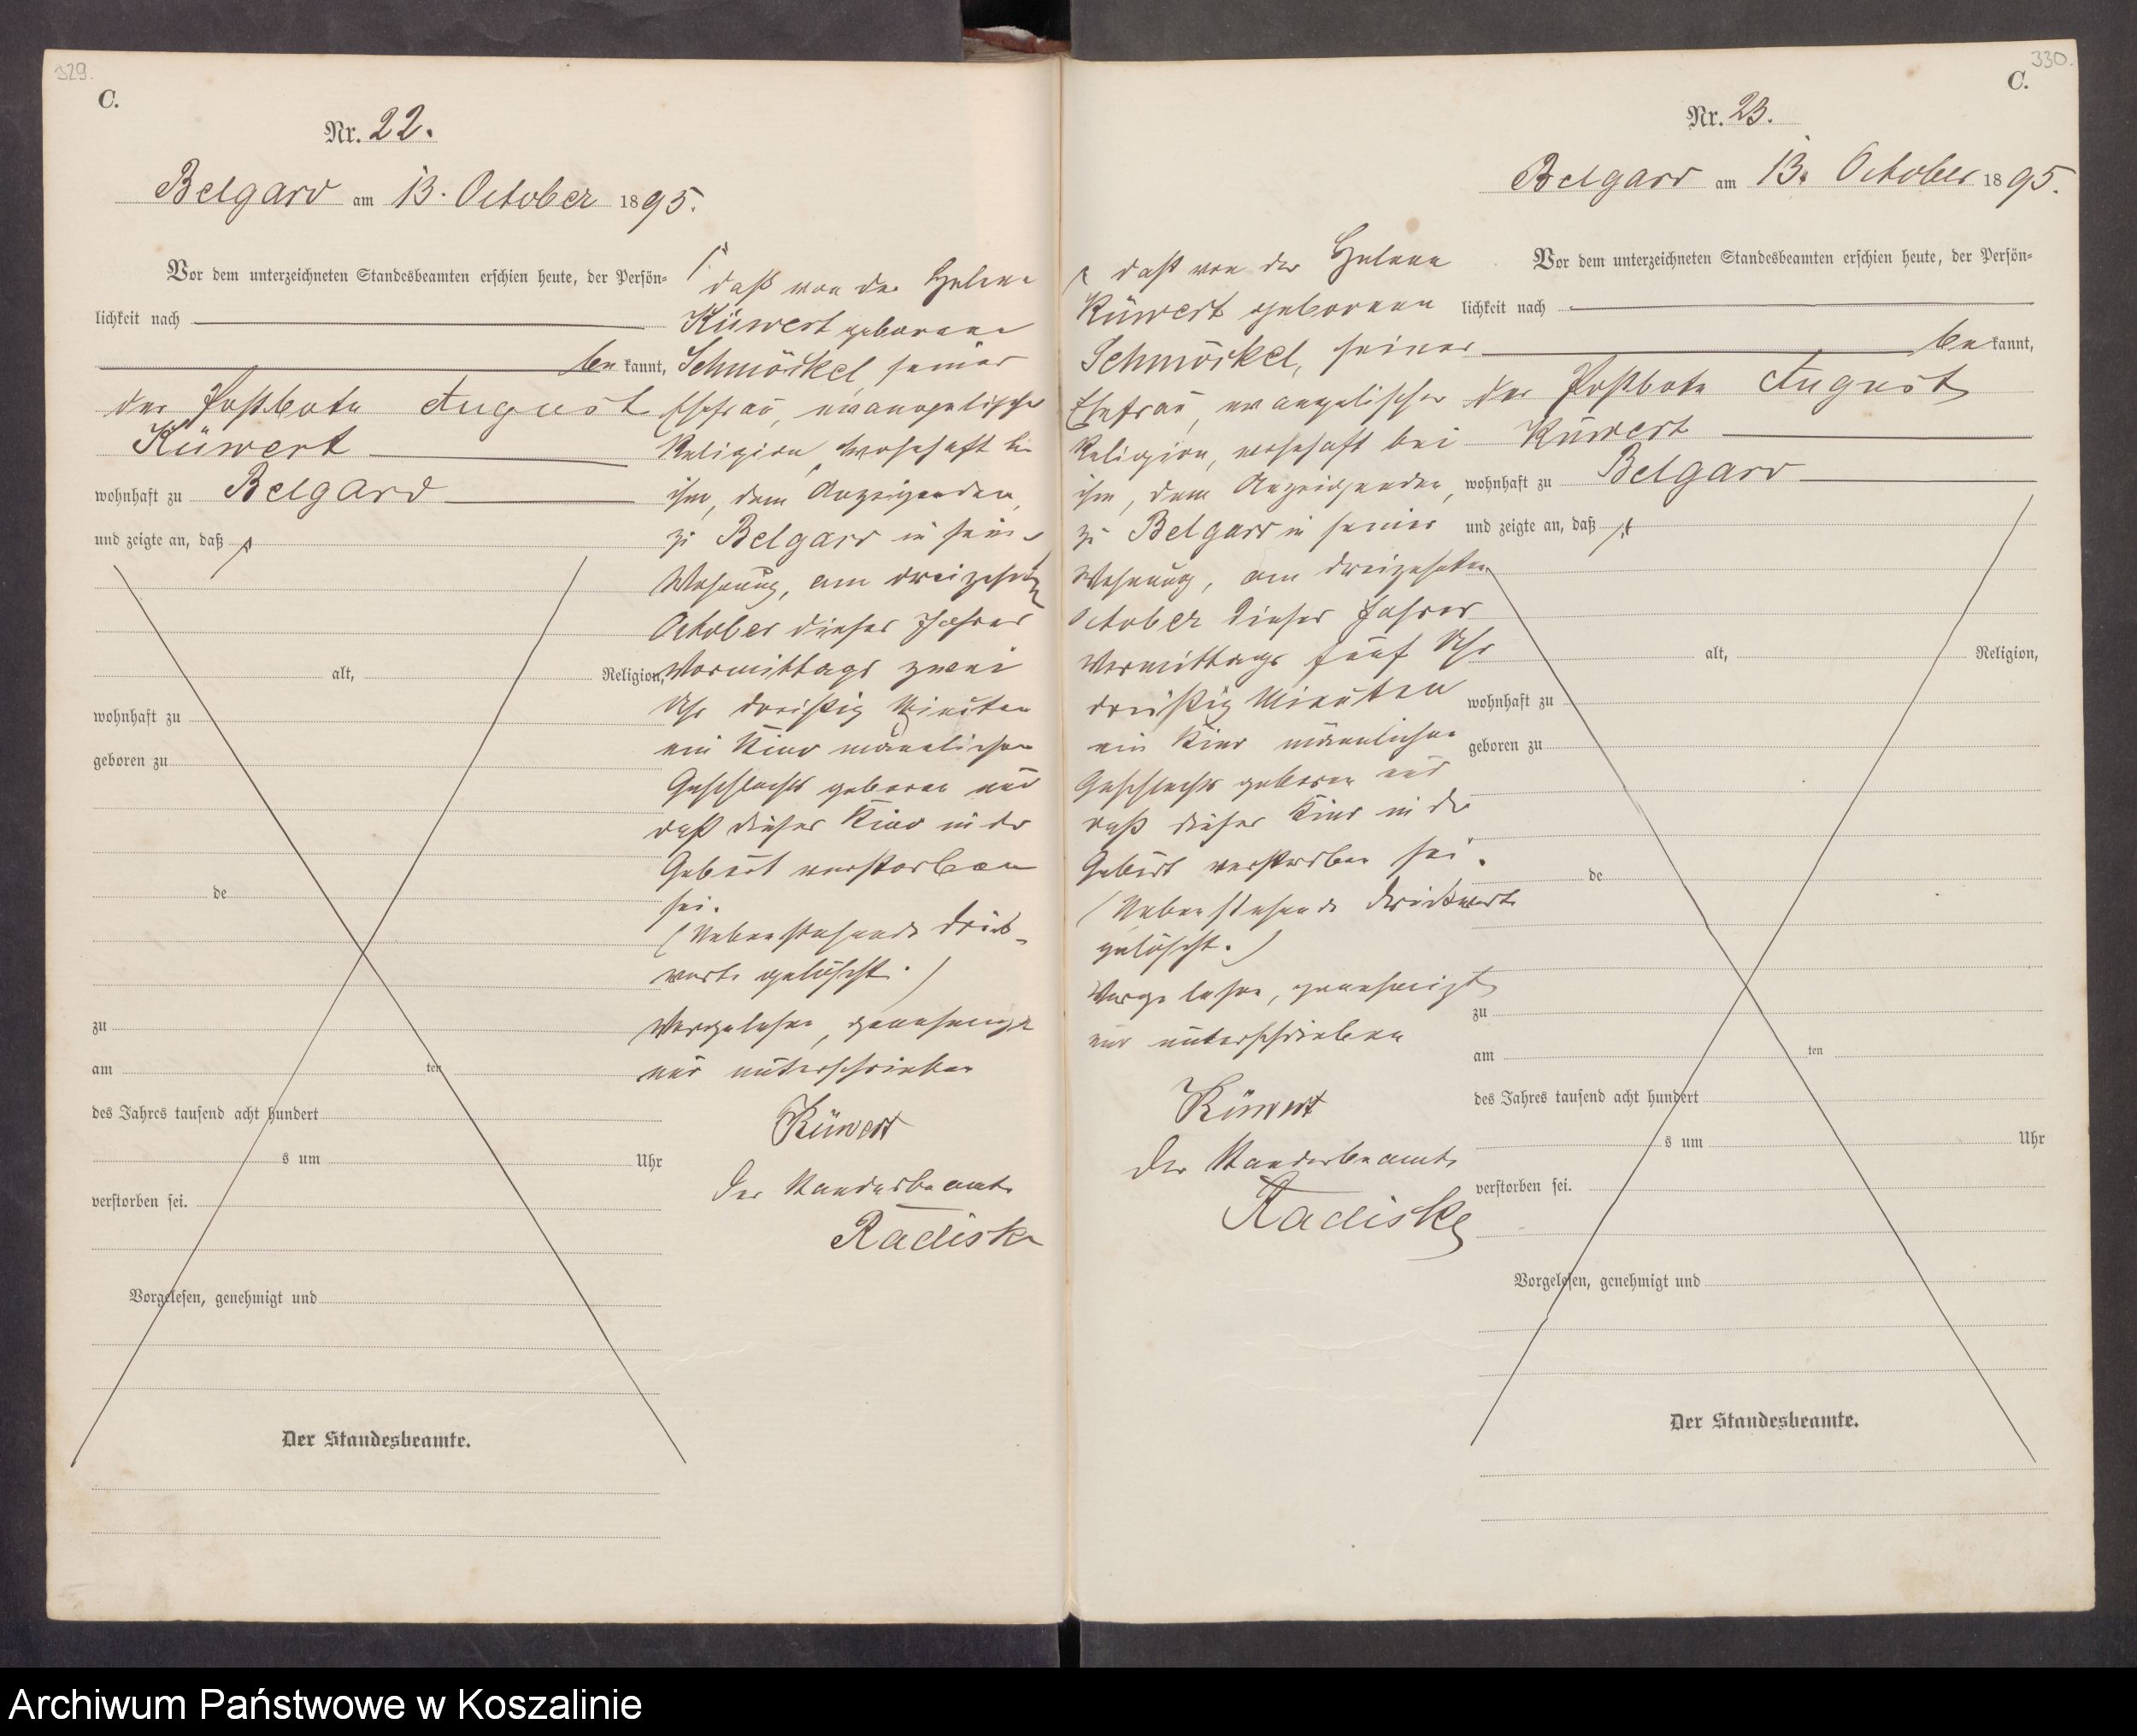 329.
C.
Nr. 22.
Belgard am 13. October 1895.
Vor dem unterzeichneten Standesbeamten erschien heute, der Persön-
lichkeit nach
be kannt,
der Postbote August
Küwert
wohnhaft zu Belgard
und zeigte an, daß
alt, Religion,
wohnhaft zu
geboren zu
de
zu
am ten
des Jahres tausend acht hundert
s um Uhr
verstorben sei.
Vorgelesen, genehmigt und
Der Standesbeamte.
daß von der Helene
Küwert geborene
Schmöckel, seiner
Ehefrau, evangelischer
Religion, wohnhaft bei
ihm, dem Anzeigenden,
zu Belgard in seiner
Wohnung, am dreizehnten
October dieses Jahres
Vormittags zwei
Uhr dreißig Minuten
ein Kind männlichen
Geschlechts geboren und
daß dieses Kind in der
Geburt verstorben
sei.
(Nebenstehende Druck-
worte gelöscht.)
Vorgelesen, genehmigt
und unterschrieben
Küwert
Der Standesbeamte
Radiske
330.
C.
Nr. 23.
Belgard am 13. October 1895.
daß von der Helene
Küwert geborenen
Schmöckel, seiner
Ehefrau, evangelischer
Religion, wohnhaft bei
ihm, dem Anzeigenden,
zu Belgard in seiner
Wohnung, am dreizehnten
October dieses Jahres
Vormittags fünf Uhr
dreißig Minuten
ein Kind männlichen
Geschlechts geboren und
daß dieses Kind in der
Geburt verstorben sei.
(Nebenstehende Druckworte
gelöscht.)
Vorgelesen, genehmigt
und unterschrieben
Küwert
Der Standesbeamte
Radiske
Vor dem unterzeichneten Standesbeamten erschien heute, der Persön-
lichkeit nach
be kannt,
der Postbote August
Küwert
wohnhaft zu Belgard
und zeigte an, daß
alt, Religion,
wohnhaft zu
geboren zu
de
zu
am ten
des Jahres tausend acht hundert
s um Uhr
verstorben sei.
Vorgelesen, genehmigt und
Der Standesbeamte.
Archiwum Państwowe w Koszalinie